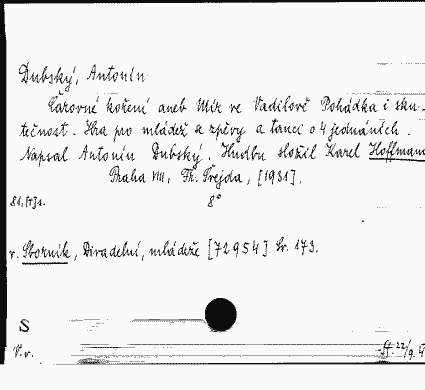 Dubský, Antonín
Čarovné koření aneb Mír ve Vadilově Pohádka i sku-
tečnost. Hra pro mládež a zpěvy a tanci o 4 jednáních.
Napsal Antonín Dubský. Hudbu složil Karel Hoffmann
Praha VIII, Fr. Švejda, [1931].
81, [1] s. 8°
v. Sborník, Divadelní, mládeže [72954] Sv. 173.
S
V. v.